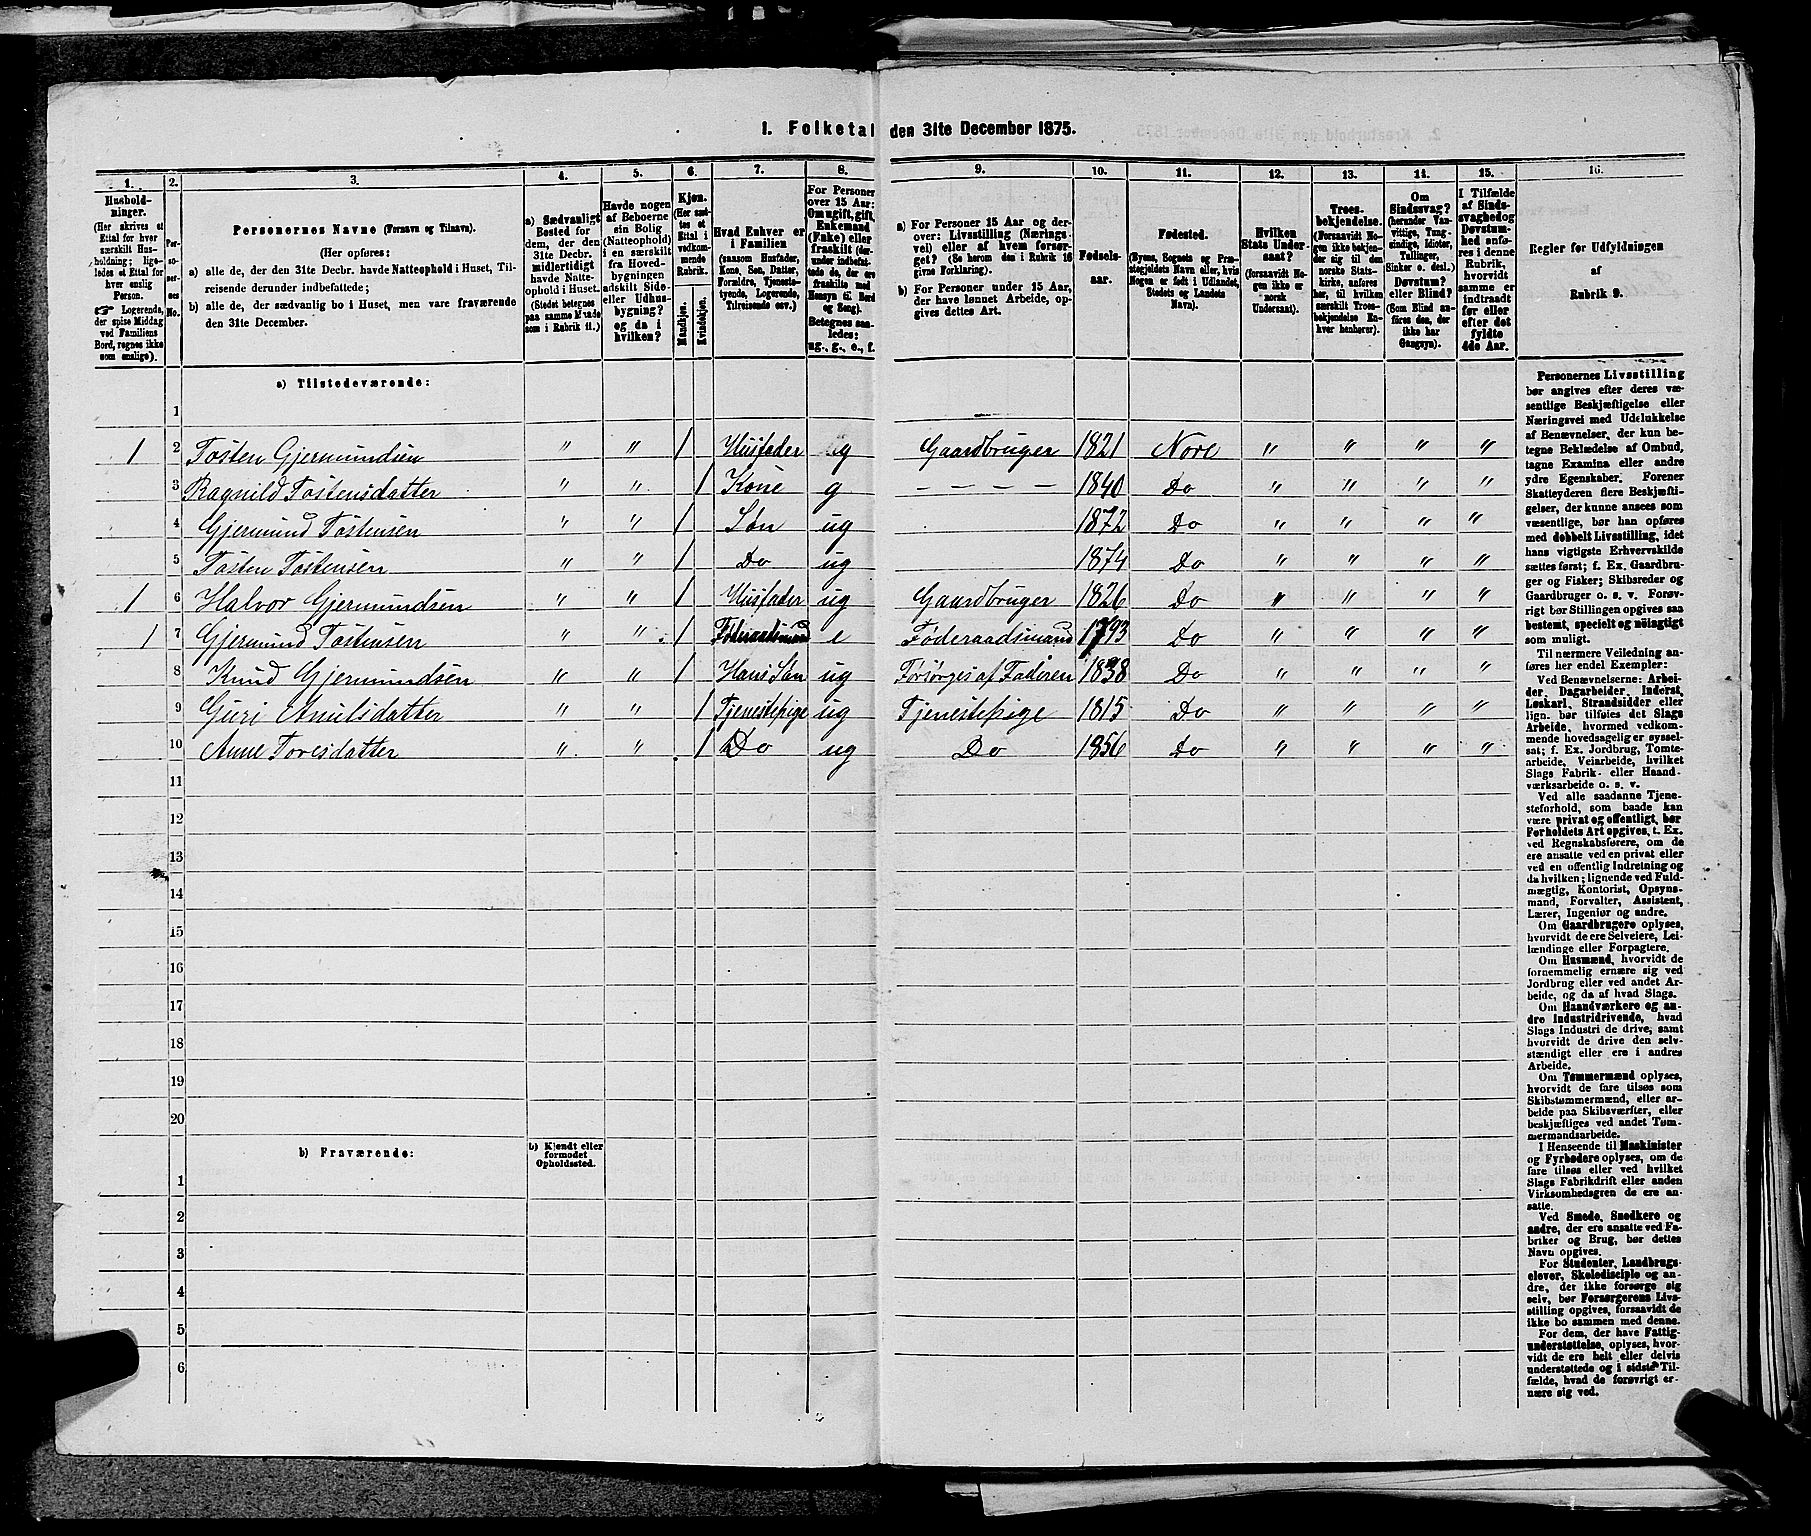 1. Folketal den 31te December 1875.
1. 2. 3. 4. 5. 6. 7. 8. 9. 10. 11. 12. 13. 14. 15. 16.
Husholdninger.
(Her skrives et
Ettal for hver
særskilt Hus-
holdning; lige-
ledes et Ettal for
hver enslig
Person.
☞ Logerende,
der spise Middag
ved Familiens
Bord, regnes ikke
som enslige).
Personernes No.
Personernes Navne (Fornavn og Tilnavn).
(Her opføres:
a) alle de, der den 31te Decbr. havde Natteophold i Huset, Til-
reisende derunder indbefattede;
b) alle de, der sædvanlig bo i Huset, men vare fraværende
den 31te December.
a) Sædvanligt
Bosted for
dem, der den
31te Decbr.
midlertidigt
havde Natte-
ophold i Huset.
(Stedet betegnes
paa samme Maade
som i Rubrik 11.)
Havde nogen
af Beboerne
sin Bolig
(Natteophold)
i en særskilt
fra Hoved-
bygningen
adskilt Side-
eller Udhus-
bygning?
og da i
hvilken?
Kjøn.
(Her sæt-
tes et
Ettal i
vedkom-
mende
Rubrik.
Mandkjøn.
Kvindekjøn.
Hvad Enhver er
i Familien
(saasom Husfader,
Kone, Søn, Datter,
Forældre, Tjeneste-
tyende, Logerende,
Tilreisende osv.)
For Personer
over 15 Aar:
Om ugift, gift,
Enkemand
(Enke) eller
fraskilt (der-
under indbefat-
tede de, der ere
fraskilte med
Hensyn til Bord
og Seng).
Betegnes saa-
ledes:
ug., g., e., f.
a) For Personer 15 Aar og der-
over: Livsstilling (Nærings-
vei) eller af hvem forsør-
get? (Se herom den i Rubrik 16
givne Forklaring).
b) For Personer under 15 Aar,
der have lønnet Arbeide, op-
gives dettes Art.
Fødsels-
aar.
Fødested.
(Byens, Sognets og Præ-
stegjeldets Navn eller, hvis
Nogen er født i Udlandet,
Stedets og Landets
Navn).
Hvilken
Stats Under-
saat?
(forsaavidt No-
gen ikke er
norsk
Undersaat).
Troes-
bekjendelse.
(Forsaavidt No-
gen ikke bekjen-
der sig til den
norske Stats-
kirke, anføres
her, til hvilken
særskilt Troes-
bekjendelse En-
hver henhører).
Om
Sindssvag?
(herunder Van-
vittige, Tung-
sindige, Idioter,
Tullinger,
Sinker o. desl.)
Døvstum?
eller Blind?
(Som Blind an-
føres den, der
ikke har
Gangsyn).
I Tilfælde
af Sinds-
svaghed og
Døvstum-
hed anfø-
res i denne
Rubrik,
hvorvidt
samme er
indtraadt
før eller
efter det
fyldte
4de Aar.
Regler for Udfyldningen
af
Rubrik 9.
a) Tilstedeværende:
1
1 2 Tosten Gjermundsen " " 1 Husfader ug Gaardbruger 1821 Nore " " " "
3 Ragnild Tostensdatter " " 1 Kone g — — — — 1840 Do " " " "
4 Gjermund Tostensen " " 1 Søn ug 1872 Do " " " "
5 Tosten Tostensen " " 1 Do ug 1874 Do " " " "
1 6 Halvor Gjermundsen " " 1 Husfader ug Gaardbruger 1826 Do " " " "
1 7 Gjermund Tostensen " " 1 Føderaadsmand e Føderaadsmand 1793 Do " " " "
8 Knud Gjermundsen " " 1 Hans Søn ug Forsørges af Faderen 1838 Do " " " "
9 Guri Amulsdatter " " 1 Tjenestepige ug Tjenestepige 1815 Do " " " "
10 Anne Toresdatter " " 1 Do ug Do 1856 Do " " " "
11
12
13
14
15
16
17
18
19
20
b) Fraværende:
b) Kjendt eller
formodet
Opholdssted.
1
2
3
4
5
6
Personernes Livsstilling
bør angives efter deres væ-
sentlige Beskjæftigelse eller
Næringsvei med Udelukkelse
af Benævnelser, der kun be-
tegne Beklædelse af Ombud,
tagne Examina eller andre
ydre Egenskaber. Forener
Skatteyderen flere Beskjæfti-
gelser, der kunne ansees som
væsentlige, bør han opføres
med dobbelt Livsstilling, idet
hans vigtigste Erhvervskilde
sættes først; f. Ex. Gaardbru-
ger og Fisker; Skibsreder og
Gaardbruger o. s. v. Forøv-
rigt bør Stillingen opgives saa
bestemt, specielt og nöiagtigt
som muligt.
Til nærmere Veiledning an-
føres her endel Exempler:
Ved Benævnelserne: Arbei-
der, Dagarbeider, Inderst,
Løskarl, Strandsidder eller
lign. bør tilføies det Slags
Arbeide, hvormed vedkom-
mende hovedsagelig er syssel-
sat; f. Ex. Jordbrug, Tomte-
arbeide, Veiarbeide, hvilket
Slags Fabrik- eller Haand-
værksarbeide o. s. v.
Ved alle saadanne Tjene-
steforhold, som baade kan
være privat og offentligt, bør
Forholdets Art opgives, t. Ex.
ved Regnskabsførere, om de
ere ansatte ved en privat eller
ved en offentlig Indretning og
da hvilken; lignende ved Fuld-
mægtig, Kontorist, Opsyns-
mand, Forvalter, Assistent,
Lærer, Ingeniør og andre.
Om Gaardbrugere oplyses,
hvorvidt de ere Selveiere, Lei-
lændinge eller Forpagtere.
Om Husmænd, hvorvidt de
fornemmelig ernære sig ved
Jordbrug eller ved andet Ar-
beide, og da af hvad Slags.
Om Haandværkere og an-
dre Industridrivende, hvad
Slags Industri de drive, samt
hvorvidt de drive den selv-
stændigt eller ere i andres
Arbeide.
Om Tømmermænd oplyses,
hvorvidt de fare tilsøs som
Skibstømmermænd, eller ar-
beide paa Skibsværfter, eller
beskjæftiges ved andet Tøm-
mermandsarbeide.
I Henseende til Maskinister
og Fyrbødere oplyses, om de
fare tilsøs eller ved hvilket
Slags Fabrikdrift eller anden
Virksomhedsgren de ere an-
satte.
Ved Smede, Snedkere og
andre, der ere ansatte ved Fa-
briker og Brug, bør dettes
Navn opgives.
For Studenter, Landbrugs-
elever, Skoledisciple og an-
dre, der ikke forsørge sig
selv, bør Forsørgerens Livs-
stilling opgives, forsaavidt de
ikke bo sammen med denne.
For dem, der have Fattig-
understøttelse, oplyses, hvor-
vidt de ere helt eller delvis
understøttede og i sidste Til-
fælde, hvad de forøvrigt er-
nære sig ved.